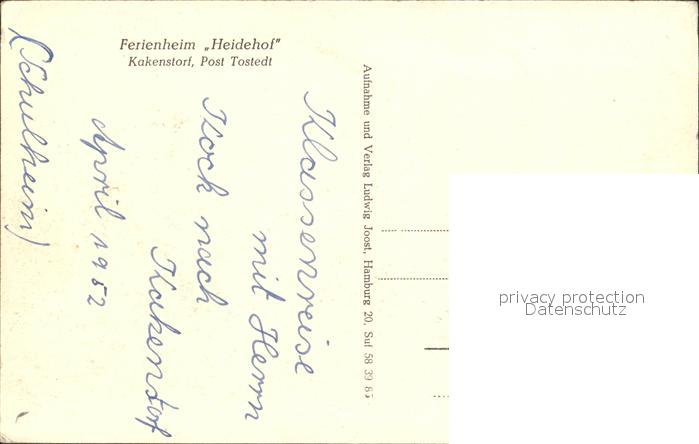 Ferienheim „Heidehof"
Kakenstorf, Post Tostedt
Klassenreise
mit Herrn
Kock nach
Kakendorf
April 1952
(Schulheim)
Aufnahme und Verlag Ludwig Joost, Hamburg 20, Suf 58 39 85
privacy protection
Datenschutz